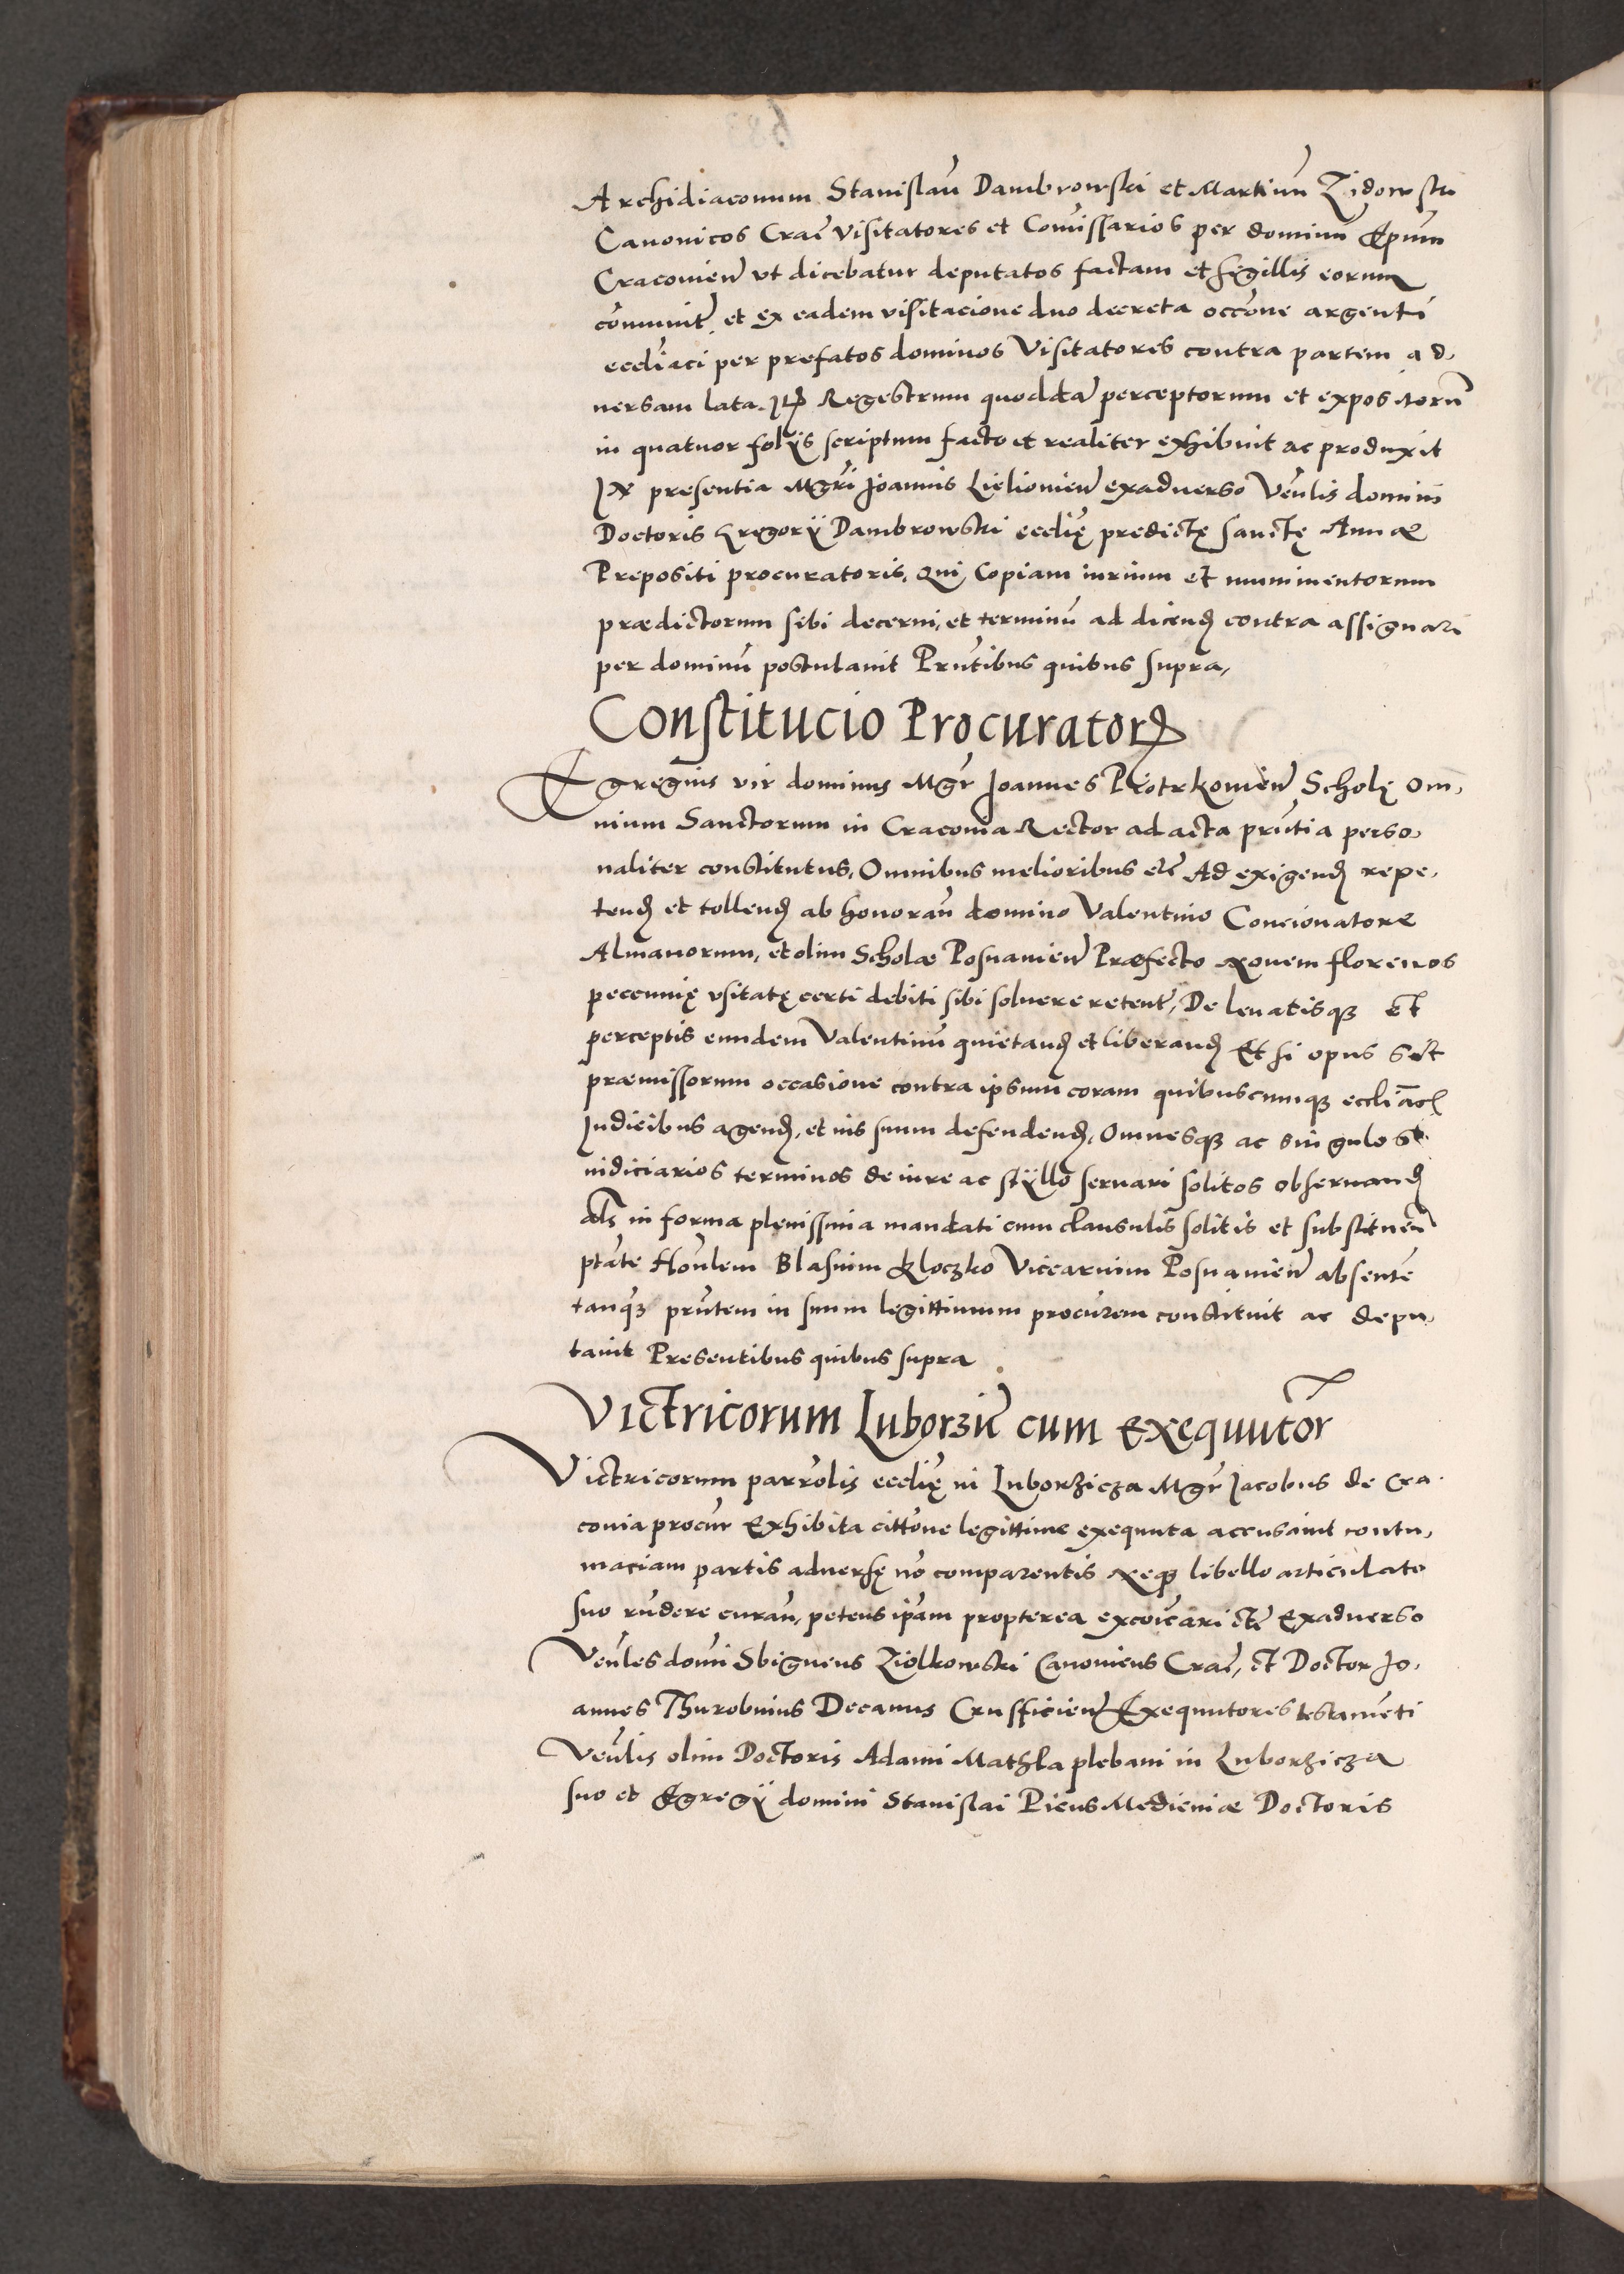 Archidiaconum Stanislaū Dambrowski et Martinū Zidowski
Canonicos Crac̄ visitatores et Com̄issarios per dominū Ep̄um
Cracovien̄ vt dicebatur deputatos factam et sigillis eorum
com̄unit̄, et ex eadem visitacione duo decreta occ̄one argenti
eccl̄iaci per prefatos dominos Visitatores contra partem ad,
uersam lata. Itē Regestrum quoddā perceptorum et expositorū
in quatuor folijs scriptum facto et realiter exhibuit ac produxit
In presentia Mgr̄i Joannis Lielionien̄ exaduerso Ven̄lis domini
Doctoris Gregorÿ Dambrowski eccl̄ię predictę sanctę Annæ
Prepositi procuratoris, qui Copiam iurium et munimentorum
prædictorum sibi decerni, et terminū ad dicend̄ contra assignari
per dominū postulauit Pr̄ntibus quibus supra,
Constitucio Procurator̄
Egregius vir dominus Mgr̄ Joannes Piotrkovien̄ Scholę Om,
nium Sanctorum in Cracovia Rector ad acta pr̄ntia perso,
naliter constitutus, Omnibus melioribus etc̄ Ad exigend̄ repe,
tend̄ et tollend̄ ab honoran̄ domino Valentino Concionatore
Almanorum, et olim Scholæ Posnanien̄ Præfecto novem florenos
peccunię vsitatę certi debiti sibi soluere retent̄, De leuatisqꝫ et
perceptis eundem Valentinū quietand̄ et liberand̄ Et si opus sit
præmissorum occasione contra ipsum coram quibuscumqꝫ eccl̄iac̄
Iudicibus agend̄, et ius suum defendend̄, Omnesqꝫ ac singulos
iudiciarios terminos de iure ac styllo seruari solitos obseruand̄
al̄s in forma plenissima mandati cum clausulis solitis et substituen̄
pt̄ate Hon̄lem Blasium Kloczko Vicearium Posnanien̄ absentē
tanqꝫ pr̄ntem in suum legittimum procur̄em constituit ac depu,
tauit Presentibus quibus supra
Victricorum Luborzic̄ cum Exequutor̄
Victricorum parr̄olis eccl̄ię in Luborzicza Mgr̄ Jacobus de Cra
couia procur̄ Exhibita citt̄one legittime exequuta accusauit contu,
maciam partis aduersę nō comparentis neqꝫ libello articulato
suo rn̄dere curan̄, petens ip̄am propterea excōicari etc̄ Exaduerso
Ven̄les domī Sbigneus Ziolkowski Canonicus Crac̄, et Doctor Jo,
annes Thurobinus Decanus Crusficien̄ Exequutores testamēti
Ven̄lis olim Doctoris Adami Mathla plebani in Luborzicza
suo et Egregÿ domini Stanislai Picus Medicinæ Doctoris